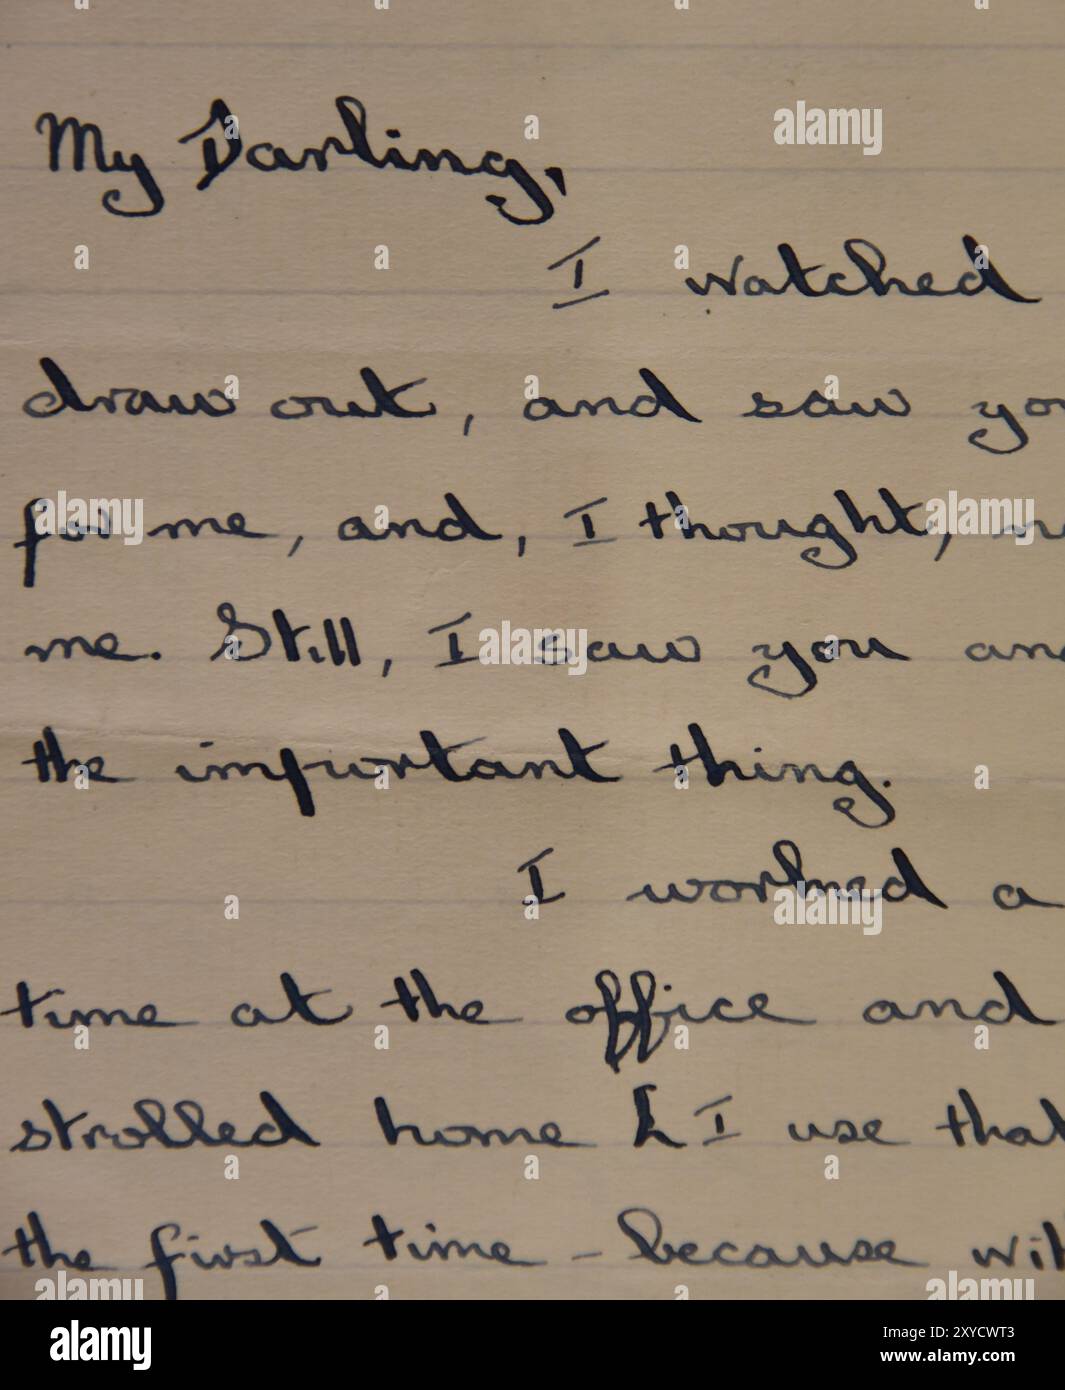 My Darling,
I watched
draw out, and saw yo
for me, and, I thought, n
me. Still, I saw you an
the important thing.
I worked a
time at the office and
strolled home I use that
the first time - because wit
alamy
Image ID: 2XYCWT3
www.alamy.com